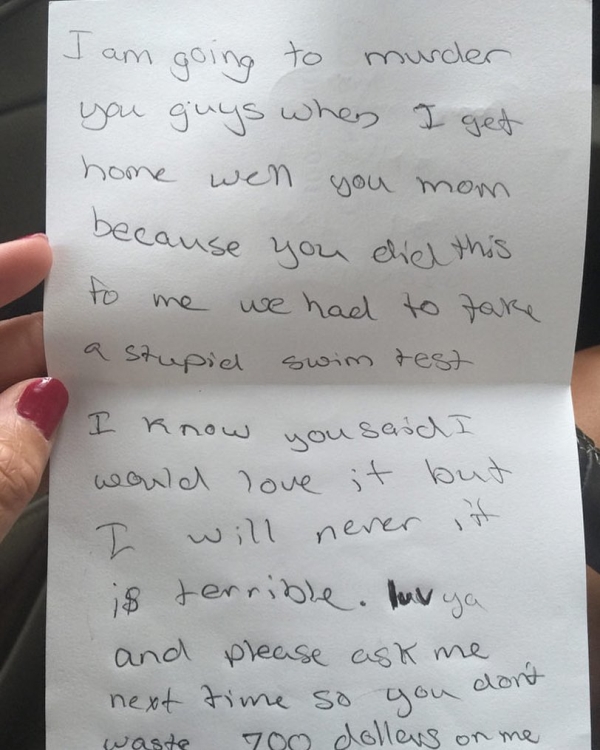 I am going to murder
you guys when I get
home well you mom
because you did this
to me we had to take
a stupid swim test
I know you said I
would love it but
I will never it
is terrible. luv ya
and please ask me
next time so you don't
waste 700 dollars on me